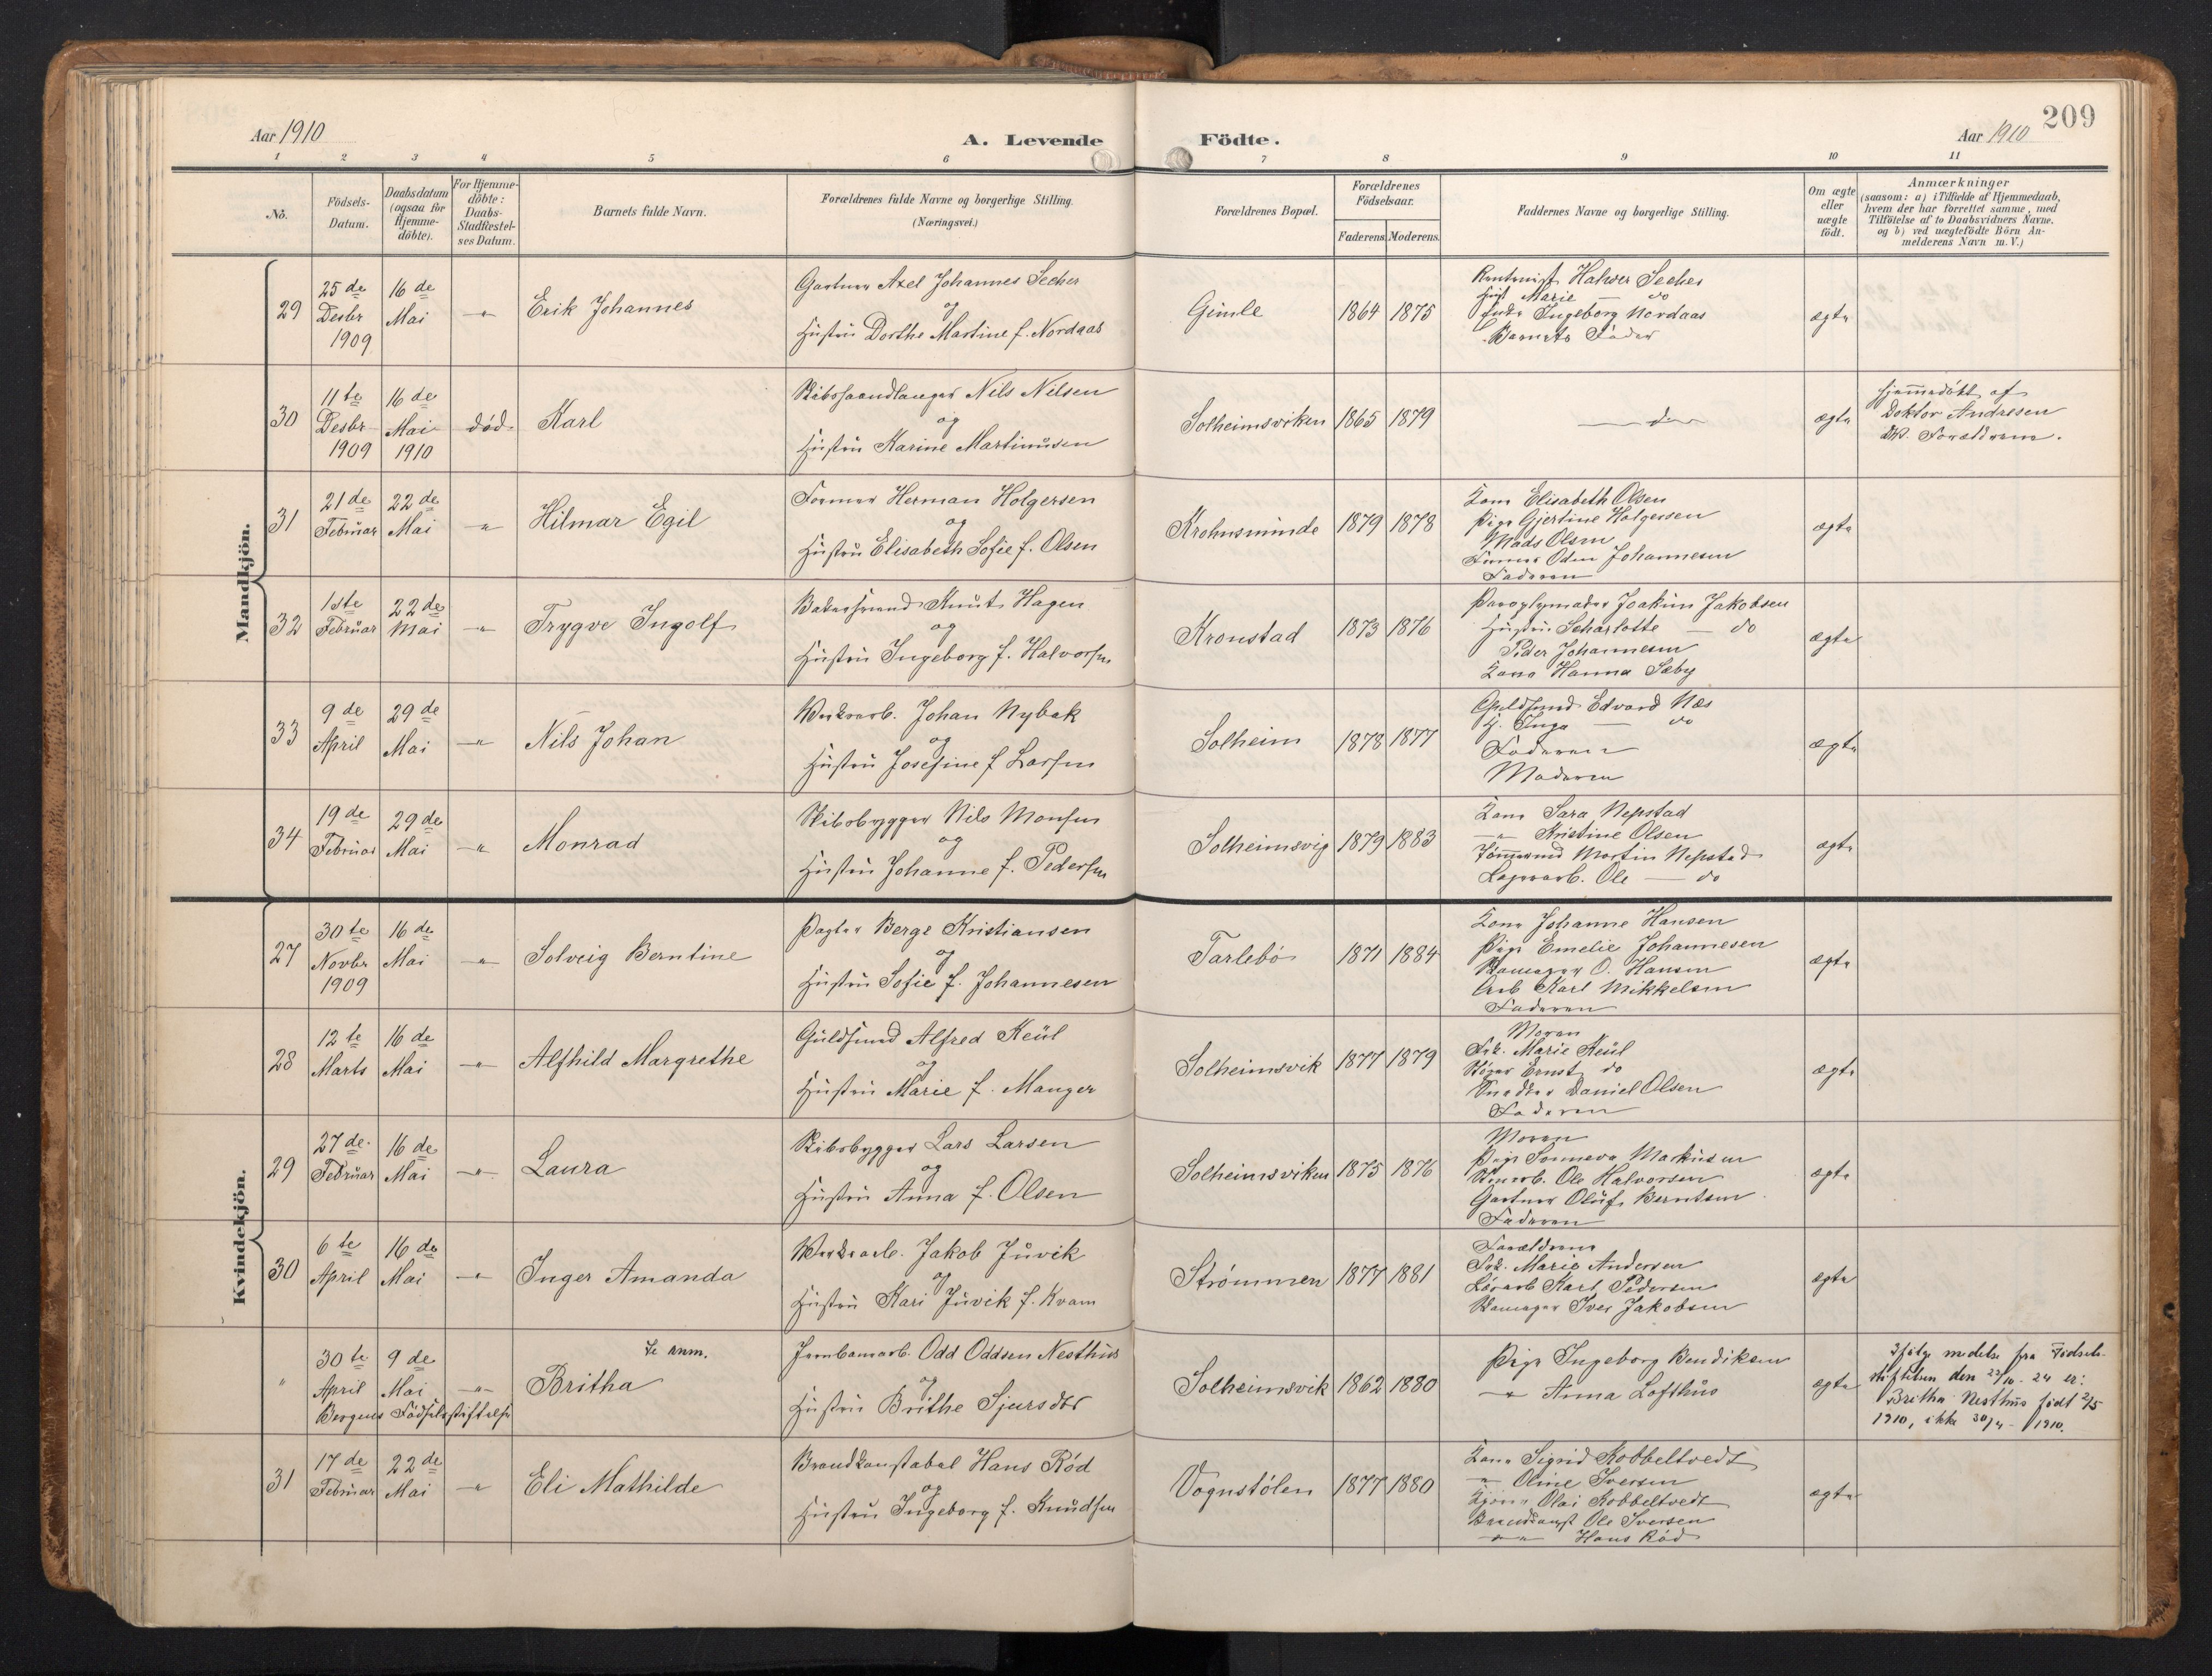 Aar 1910
A. Levende Födte.
Aar 1910
209
1 2 3 4 5 6 7 8 9 10 11
No.
Födsels-
Datum.
Daabsdatum
(ogsaa for
Hjemme-
döbte).
For Hjemme-
döbte:
Daabs-
Stadfæstel-
ses Datum.
Barnets fulde Navn.
Forældrenes fulde Navne og borgerlige Stilling.
(Næringsvei.)
Forældrenes Bopæl.
Forældrenes
Födselsaar.
Faderens. Moderens.
Faddernes Navne og borgerlige Stilling.
Om ægte
eller
uægte
födt.
Anmærkninger
(saasom: a) i Tilfælde af Hjemmedaab,
hvem der har forrettet samme, med
Tilföielse af to Daabsvidners Navne.
og b) ved uægtefödte Börn An-
melderens Navn m. V.)
Mandkjön.
29
25 de
Desbr
1909
16 de
Mai
"
Erik Johannes
Gartner Axel Johannes Secher
og
Hustru Dorthe Martine f. Nordaas
Gimle
1864 1875
Halvor Secher
Marie — do
Ingeborg Nordaas
Barnets Fader
ægte
30
11 te
Desbr
1909
16 de
Mai
1910
død
Karl
Skibshaandlanger Nils Nilsen
og
Hustru Karine Martinusen
Solheimsviken
1865 1879
ægte
hjemmedöbt af
Doktor Andresen
Forældrene.
31
21 de
Februar
22 de
Mai
"
Hilmar Egil
Former Herman Holgersen
og
Hustru Elisabeth Sofie f. Olsen
Krohnsminde
1879 1878
Kone Elisabeth Olsen
Pige Gjertine Holgersen
Mads Olsen
Former Odin Johannesen
Faderen
ægte
32
1ste
Februar
22 de
Mai
"
Trygve Ingolf
Bakersvend Knut Hagen
og
Hustru Ingeborg f. Halvorsen
Kronstad
1873 1876
Paraplymaker Joakim Jakobsen
Hustru Scharlotte — do
Peder Johannesen
Kone Hanna Sæby
ægte
33
9 de
April
29 de
Mai
"
Nils Johan
Verksarb. Johan Nybak
og
Hustru Josefine f Larsen
Solheim
1878 1877
Guldsmed Edvard Næs
H. Inga — do
Faderen
Moderen
ægte
34
19 de
Februar
29 de
Mai
"
Monrad
Skibsbygger Nils Monsen
og
Hustru Johanne f. Pedersen
Solheimsvig
1879 1883
Kone Sara Nepstad
" Kristine Olsen
Tømmermd Martin Nepstad
Lagerarb. Ole — do
ægte
Kvindekjön.
27
30 te
Novbr
1909
16 de
Mai
"
Solveig Berntine
Pagter Berge Kristiansen
og
Hustru Sofie f. Johannesen
Tarlebø
1871 1884
Kone Johanne Hansen
Pige Emelie Johannesen
O. Hansen
Arb Karl Mikkelsen
Faderen
ægte
28
12 te
Marts
16 de
Mai
"
Alfhild Margrethe
Guldsmed Alfred Keül
og
Hustru Marie f. Manger
Solheimsvik
1877 1879
Moren
Frk. Marie Keül
Ernst do
Snedker Daniel Olsen
Faderen
ægte
29
27 de
Februar
16 de
Mai
"
Laura
Skibsbygger Lars Larsen
og
Hustru Anna f. Olsen
Solheimsviken
1875 1876
Moren
Pige Sonneva Markusen
Ole Halvorsen
Gartner Oluf Berntsen
Faderen
ægte
30
6 te
April
16 de
Mai
"
Inger Amanda
Verksarb. Jakob Juvik
og
Hustru Kari Juvik f. Kvam
Strømmen
1877 1881
Forældrene
Frk. Marie Andersen
Karl Pedersen
Iver Jakobsen
ægte
"
30 te
April
9 de
Mai
Bergens Fødselsstiftelse
"
Se anm.
Britha
Jernbanearb. Odd Oddsen Nesthus
og
Hustru Brithe Sjursdtr
Solheimsvik
1862 1880
Pige Ingeborg Bendiksen
" Anna Lofthus
ægte
Ifølge medelse fra Fødsels-
stiftelsen den 23/10-24 er:
Britha Nesthus født 2/5
1910, ikke 30/4-1910.
31
17 de
Februar
22 de
Mai
"
Eli Mathilde
Brandkonstabel Hans Rød
og
Hustru Ingeborg f. Knudsen
Vognstølen
1877 1880
Kone Sigrid Kobbeltvedt
" Oline Iversen
Olai Kobbeltvedt
Brandkonst Ole Iversen
" " Hans Rød
ægte